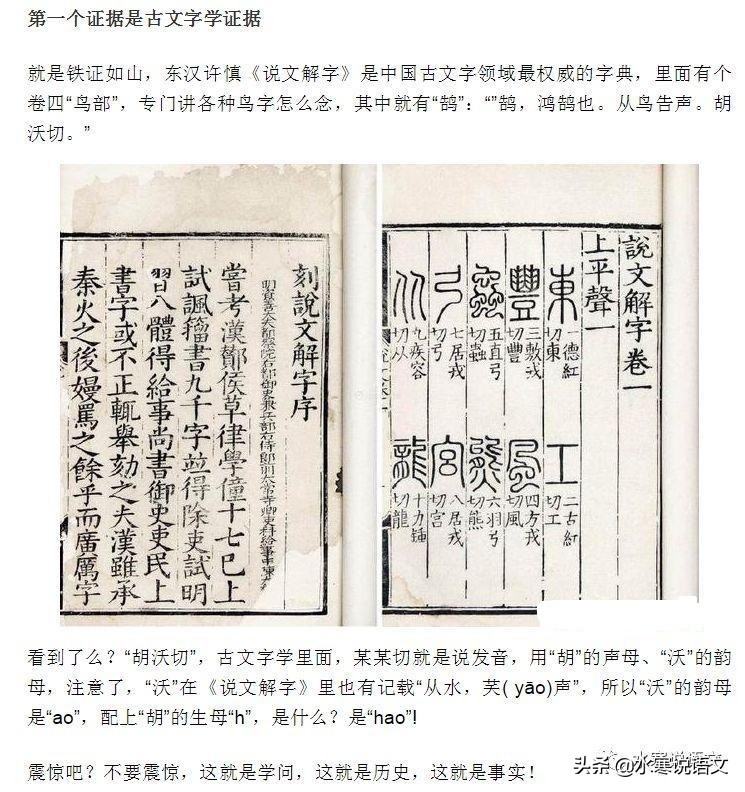 第一个证据是古文字学证据
就是铁证如山，东汉许慎《说文解字》是中国古文字领域最权威的字典，里面有个
卷四“鸟部”，专门讲各种鸟字怎么念，其中就有“鹄”：“”鹄，鸿鹄也。从鸟告声。胡
沃切。”
刻說文解字序
嘗考漢鄼侯草律學僮十七巳上
試諷籀書九千字竝得除吏試明
習八體得給事尚書御史吏民上
書字或不正輒舉劾之夫漢雖承
秦火之後嫚罵之餘乎而廣厲字
說文解字卷一
上平聲一
東 一德紅切東 工 二古紅切工
豐 三敷戎切豐 風 四方戎切風
蟲 五直弓切蟲 熊 六羽弓切熊
弓 七居戎切弓 宮 八居戎切宮
从 九疾容切从 龍 十力鍾切龍
看到了么？“胡沃切”，古文字学里面，某某切就是说发音，用“胡”的声母、“沃”的韵
母，注意了，“沃”在《说文解字》里也有记载“从水，芺( yāo)声”，所以“沃”的韵母
是“ao”，配上“胡”的生母“h”，是什么？是“hao”!
震惊吧？不要震惊，这就是学问，这就是历史，这就是事实！
水寒说语文
头条 @水寒说语文